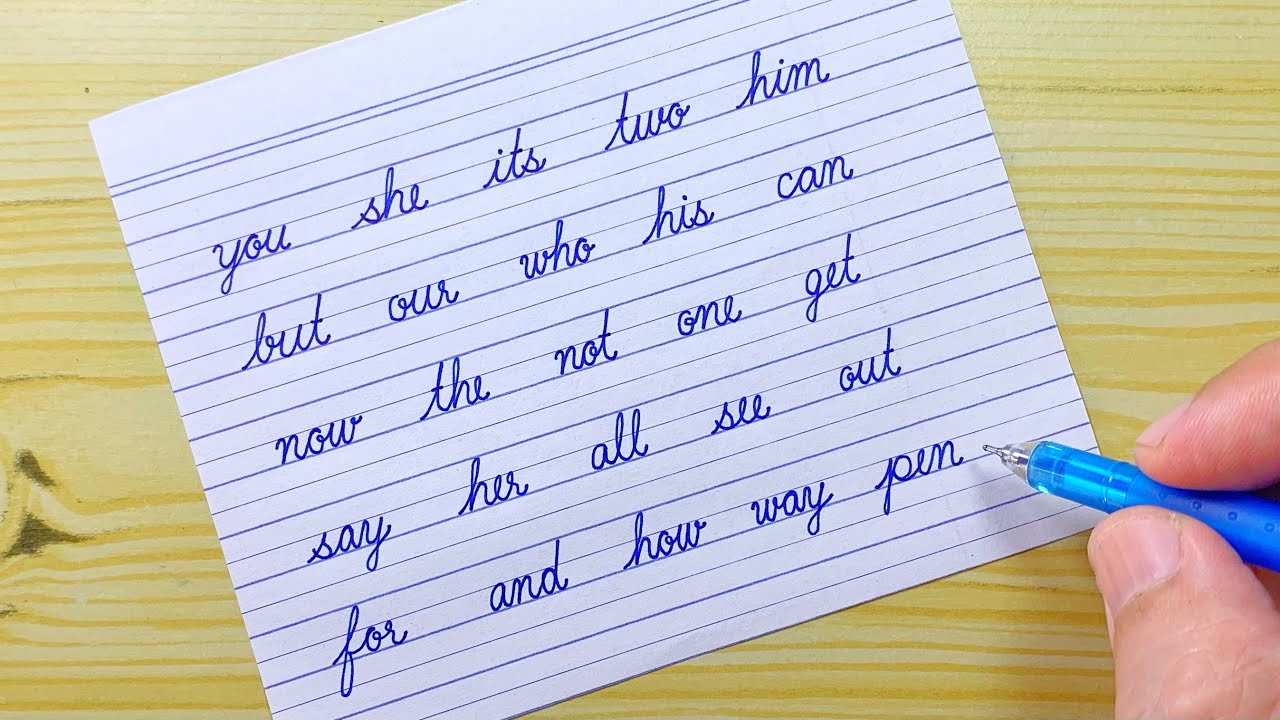 you she its two him
but our who his can
now the not one get
say her all see out
for and how way pen